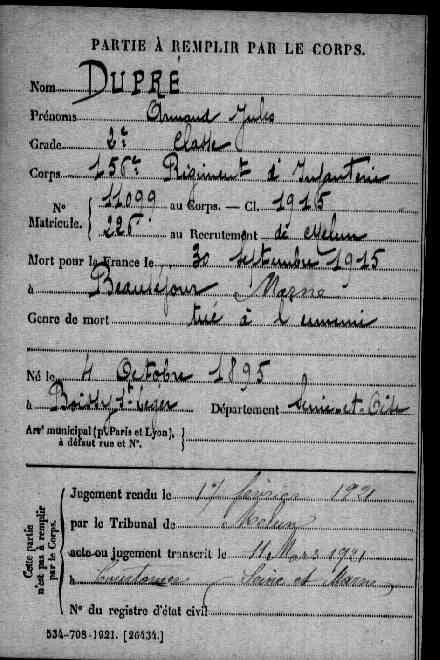 PARTIE À REMPLIR PAR LE CORPS.
Nom DUPRÉ
Prénoms Armand Jules
Grade 2e Classe
Corps 156e Régiment d'Infanterie
N° Matricule. { 11099 au Corps. — Cl. 1915
226 au Recrutement de Melun
Mort pour la France le 30 Septembre 1915
à Beauséjour Marne
Genre de mort tué à l ennemi
Né le 4 Octobre 1895
à Boissy St Leger Département Seine-et-Oise
Arr^t municipal (p^r Paris et Lyon), à défaut rue et N°. }
Cette partie n'est pas à remplir par le Corps. {
Jugement rendu le 17 février 1921
par le Tribunal de Melun
acte ou jugement transcrit le 11 Mars 1921
à Seine et Marne
N° du registre d'état civil
534-708-1921. [26434.]